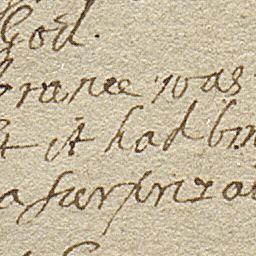 God.
brance was
t it had bin
a surprizal